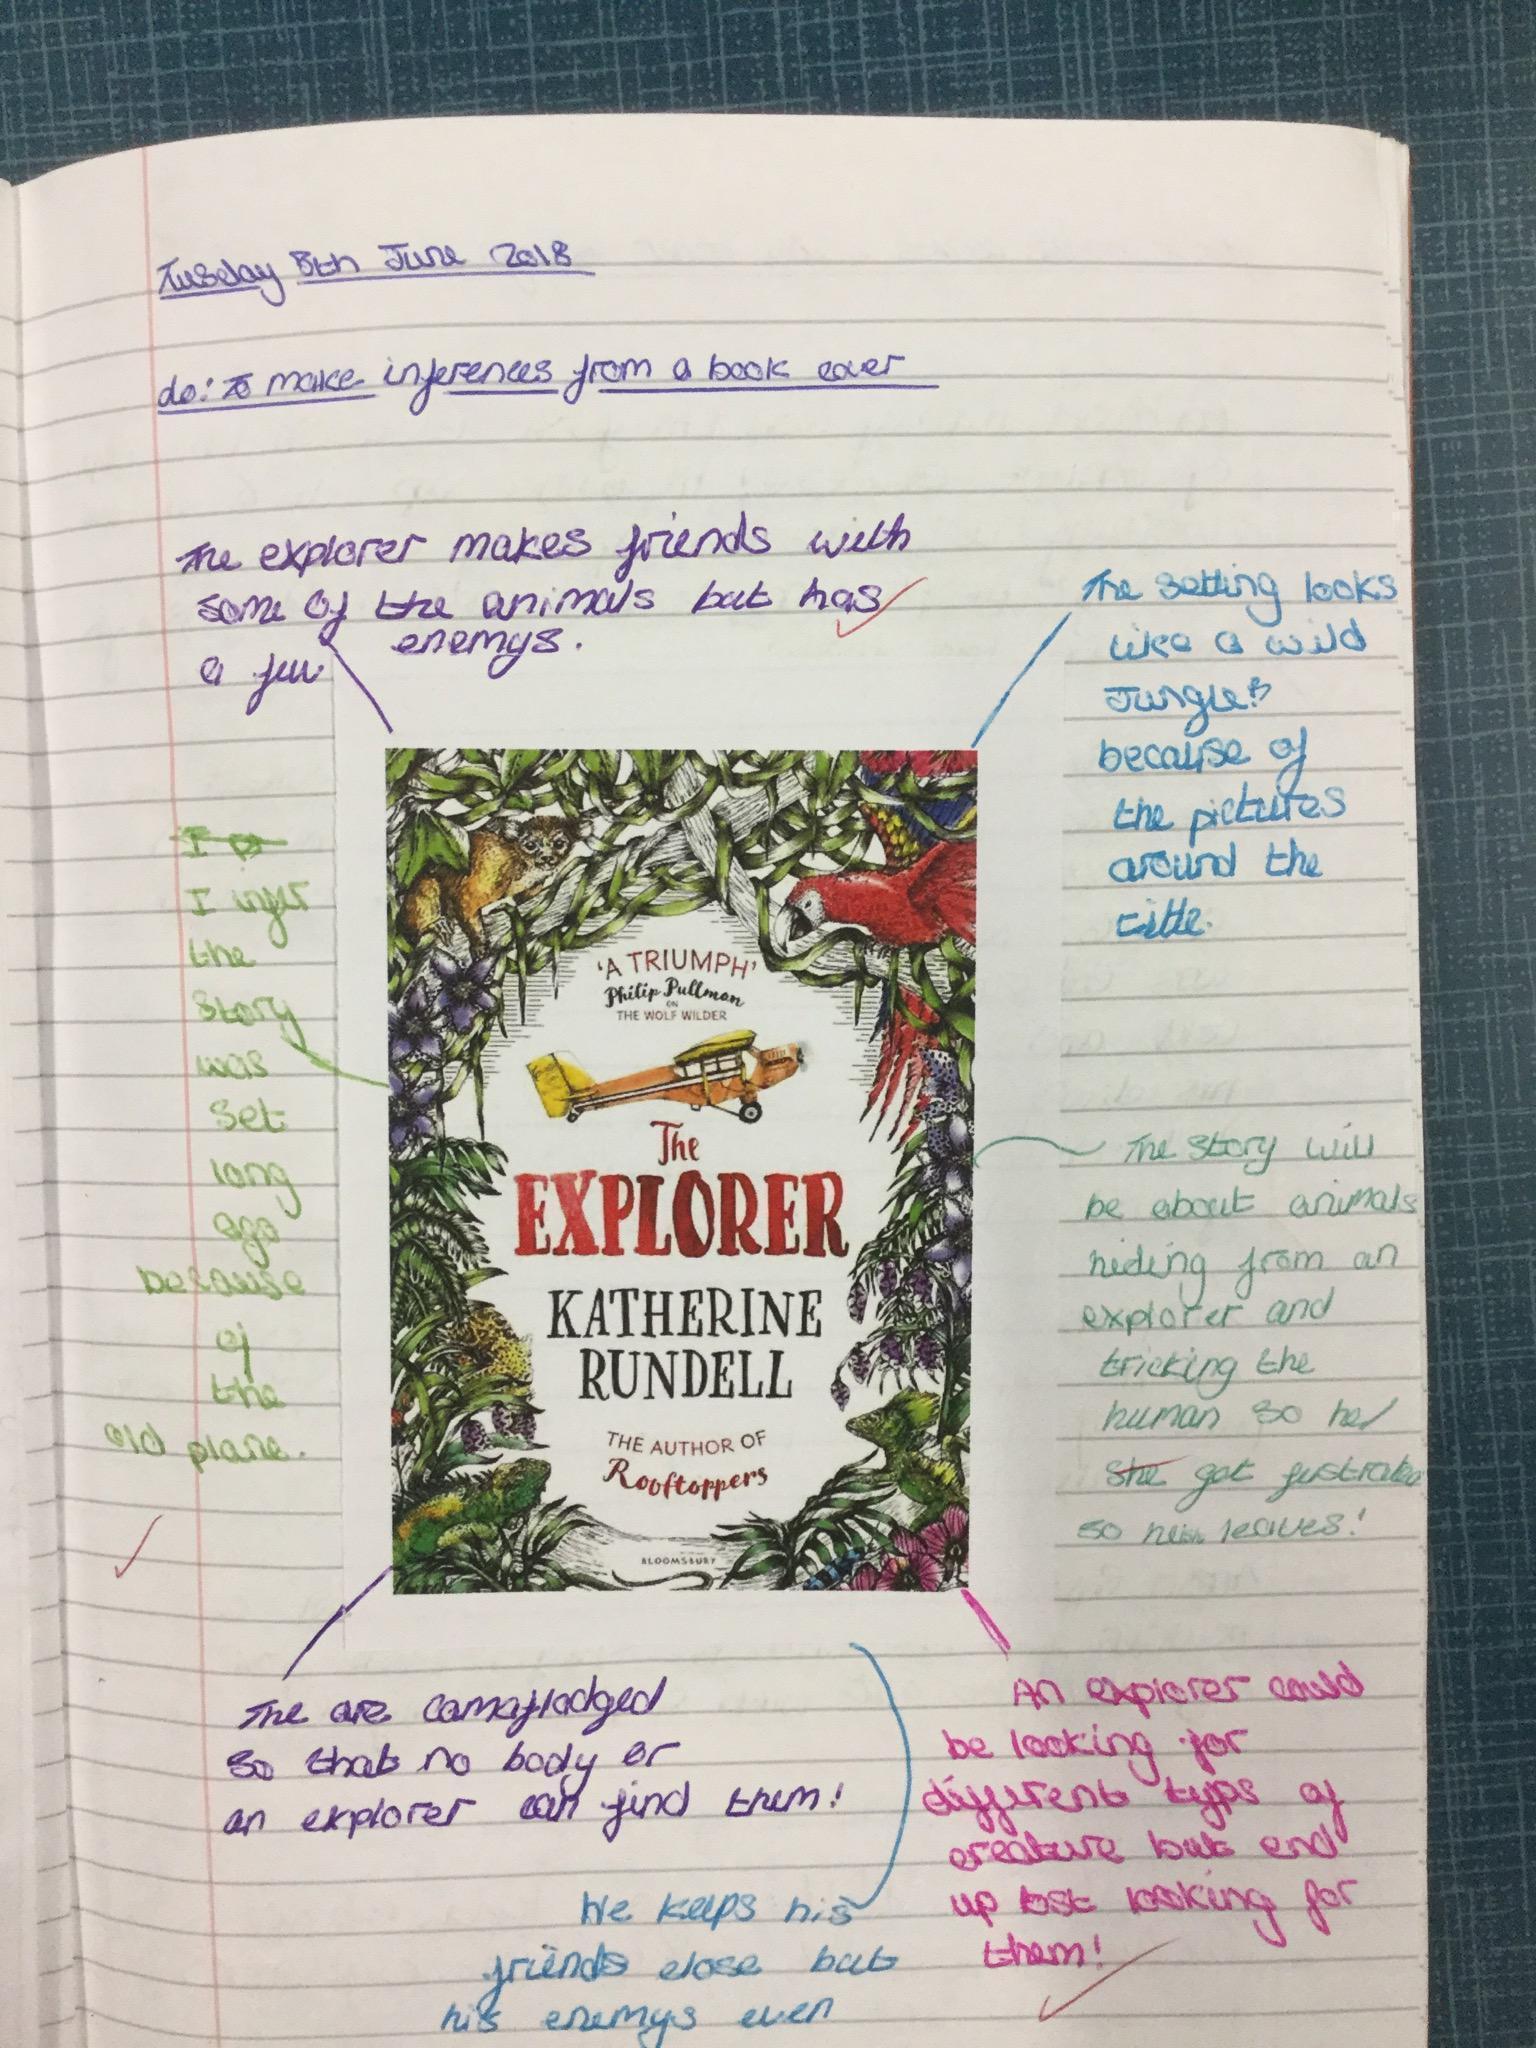 Tuesday 5th June 2018
do: To make inferences from a book cover
The explorer makes friends with
some of the animals but has
a few enemys.
The setting looks
like a wild
Jungle
because of
the pictures
around the
title.
I infer
the
story
was
set
long
ago
because
of
the
old plane.
'A TRIUMPH'
Philip Pullman
ON
THE WOLF WILDER
The
EXPLORER
KATHERINE
RUNDELL
THE AUTHOR OF
Rooftoppers
BLOOMSBURY
The story will
be about animals
hiding from an
explorer and
tricking the
human so he/
she get
so leaves!
The are camafladged
so that no body or
an explorer can find them!
An explorer could
be looking for
different typs of
creature but end
up lost looking for
them!
He keeps his
friends close but
his enemys even